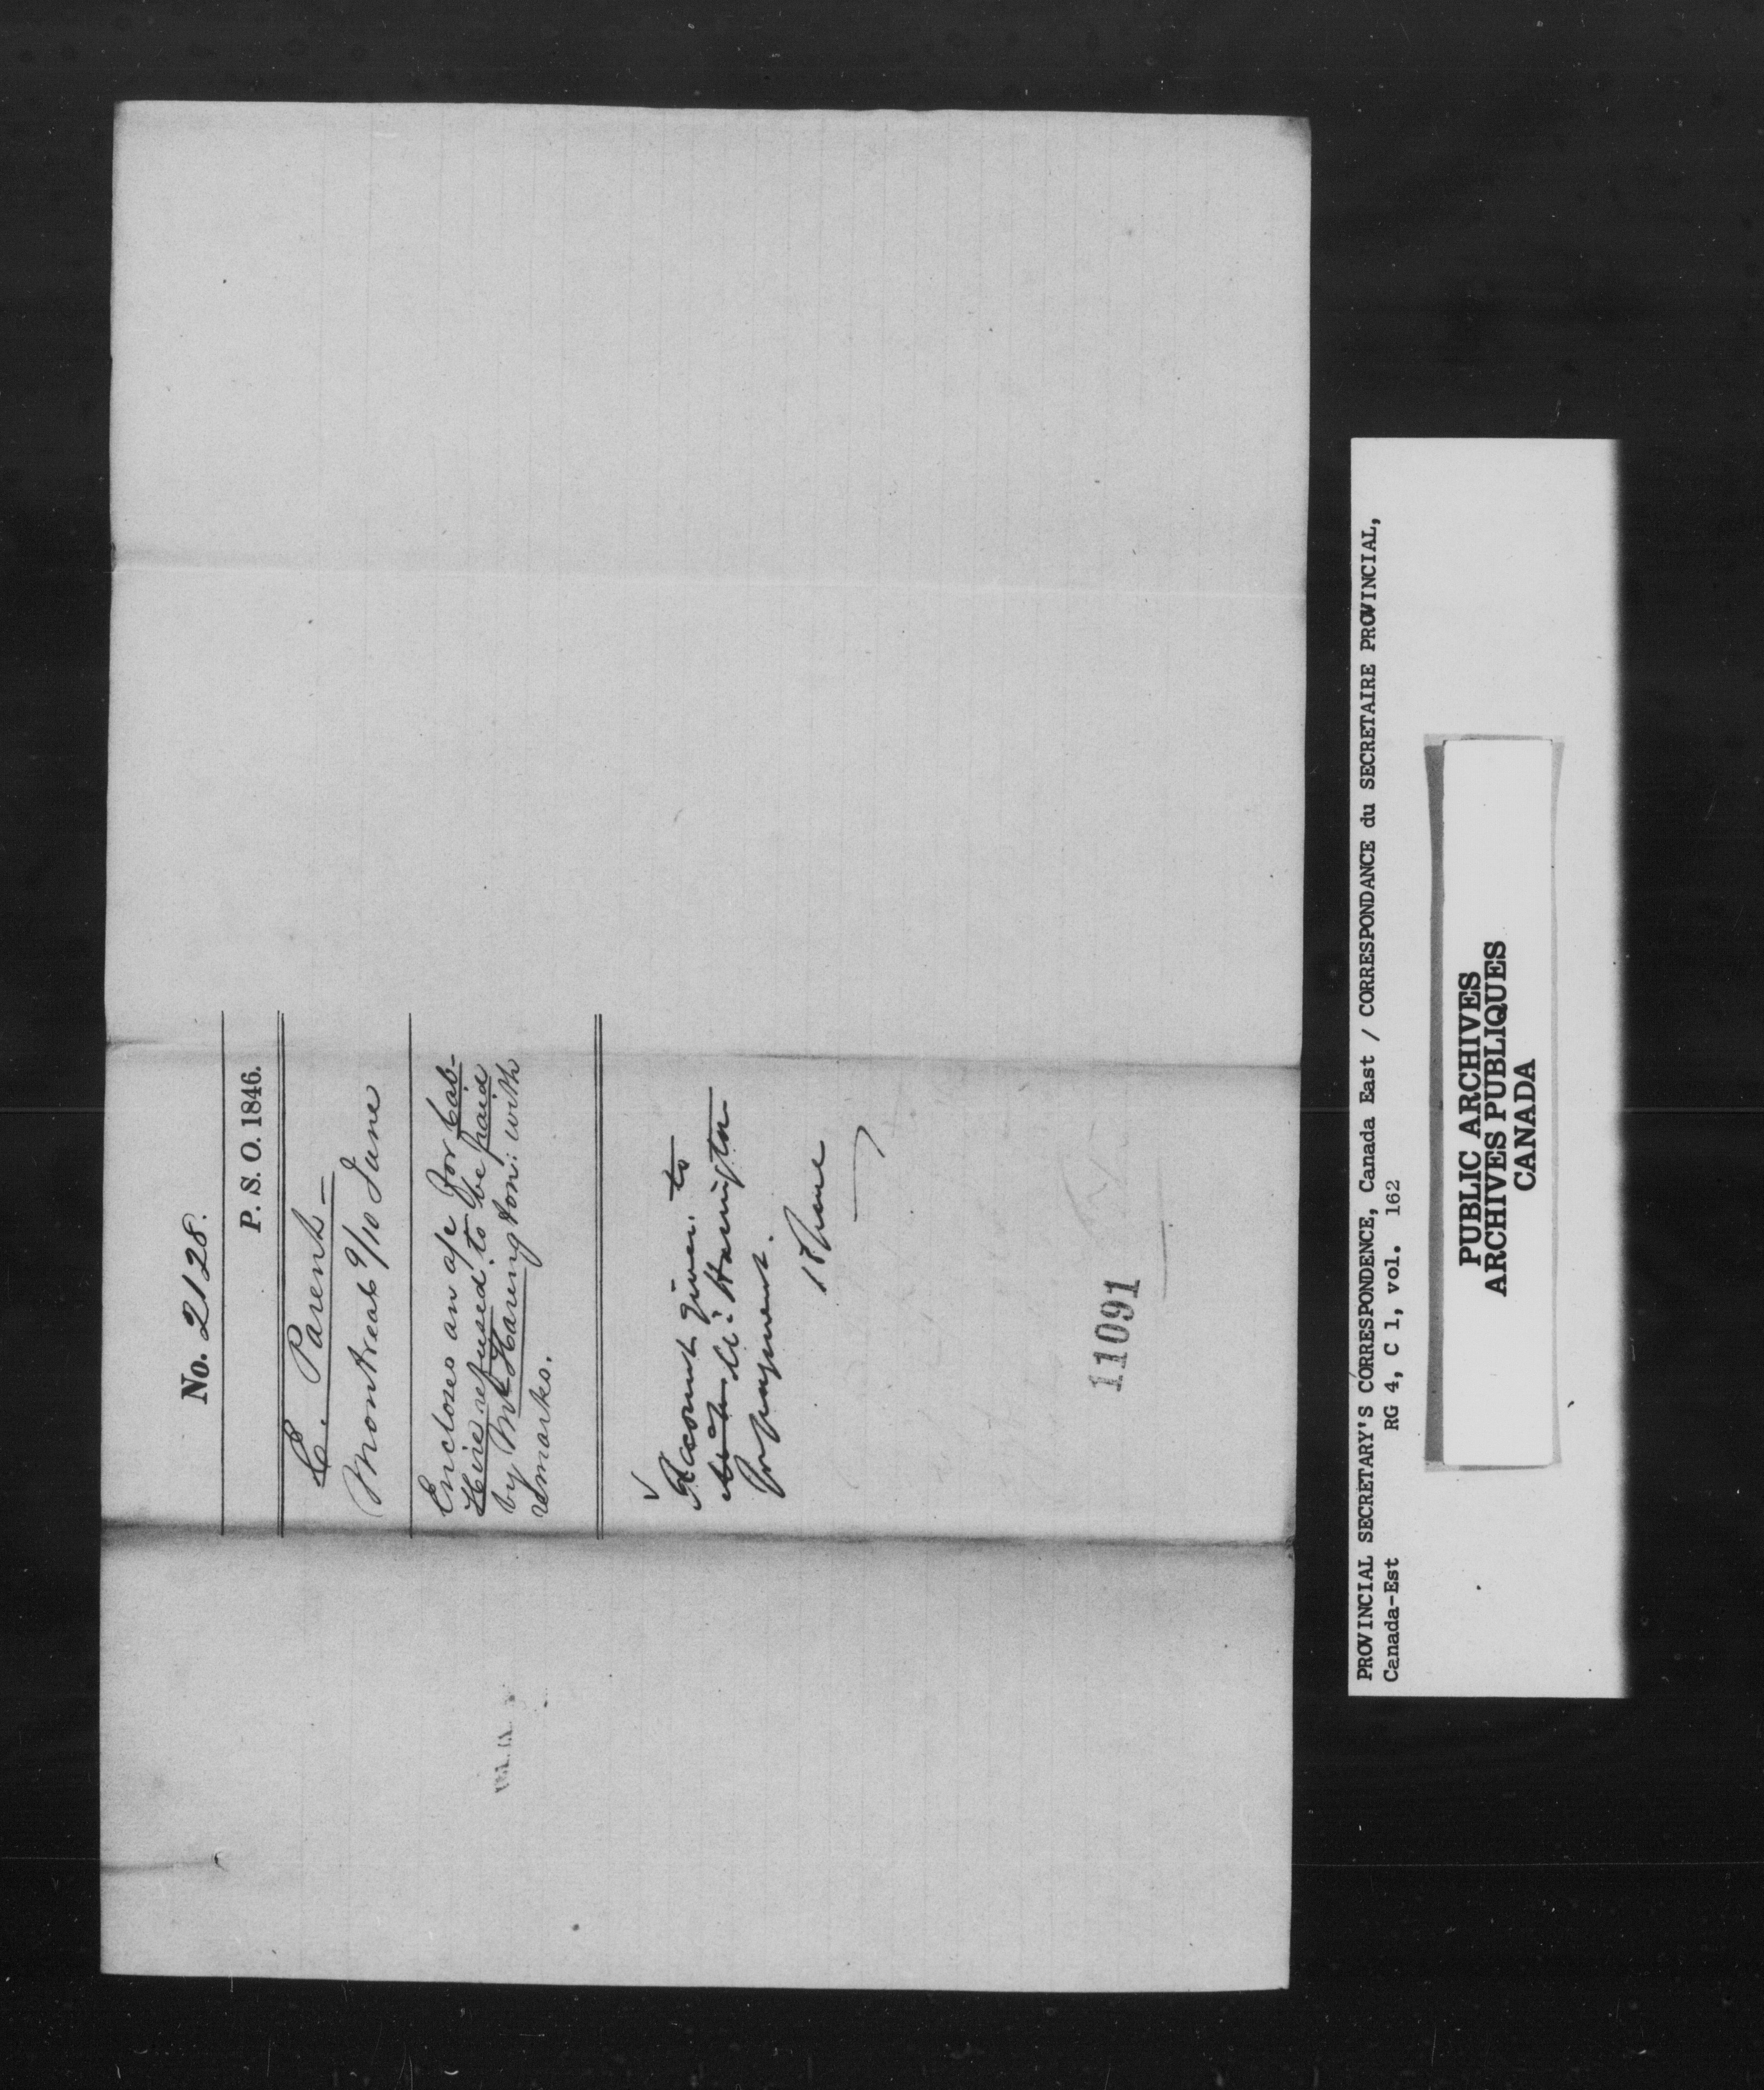 No. 2128.
P. S. O. 1846.
E. Parent
Montreal 9/10 June
Encloses an a/c for Cab-
Hire refused to be paid
by Mr Harington: with
remarks.
Account given to
Mr: Harington
for payment.
18 June
11091
PROVINCIAL SECRETARY'S CORRESPONDENCE, Canada East / CORRESPONDANCE du SECRETAIRE PROVINCIAL,
Canada-Est RG 4, C 1, vol. 162
PUBLIC ARCHIVES
ARCHIVES PUBLIQUES
CANADA